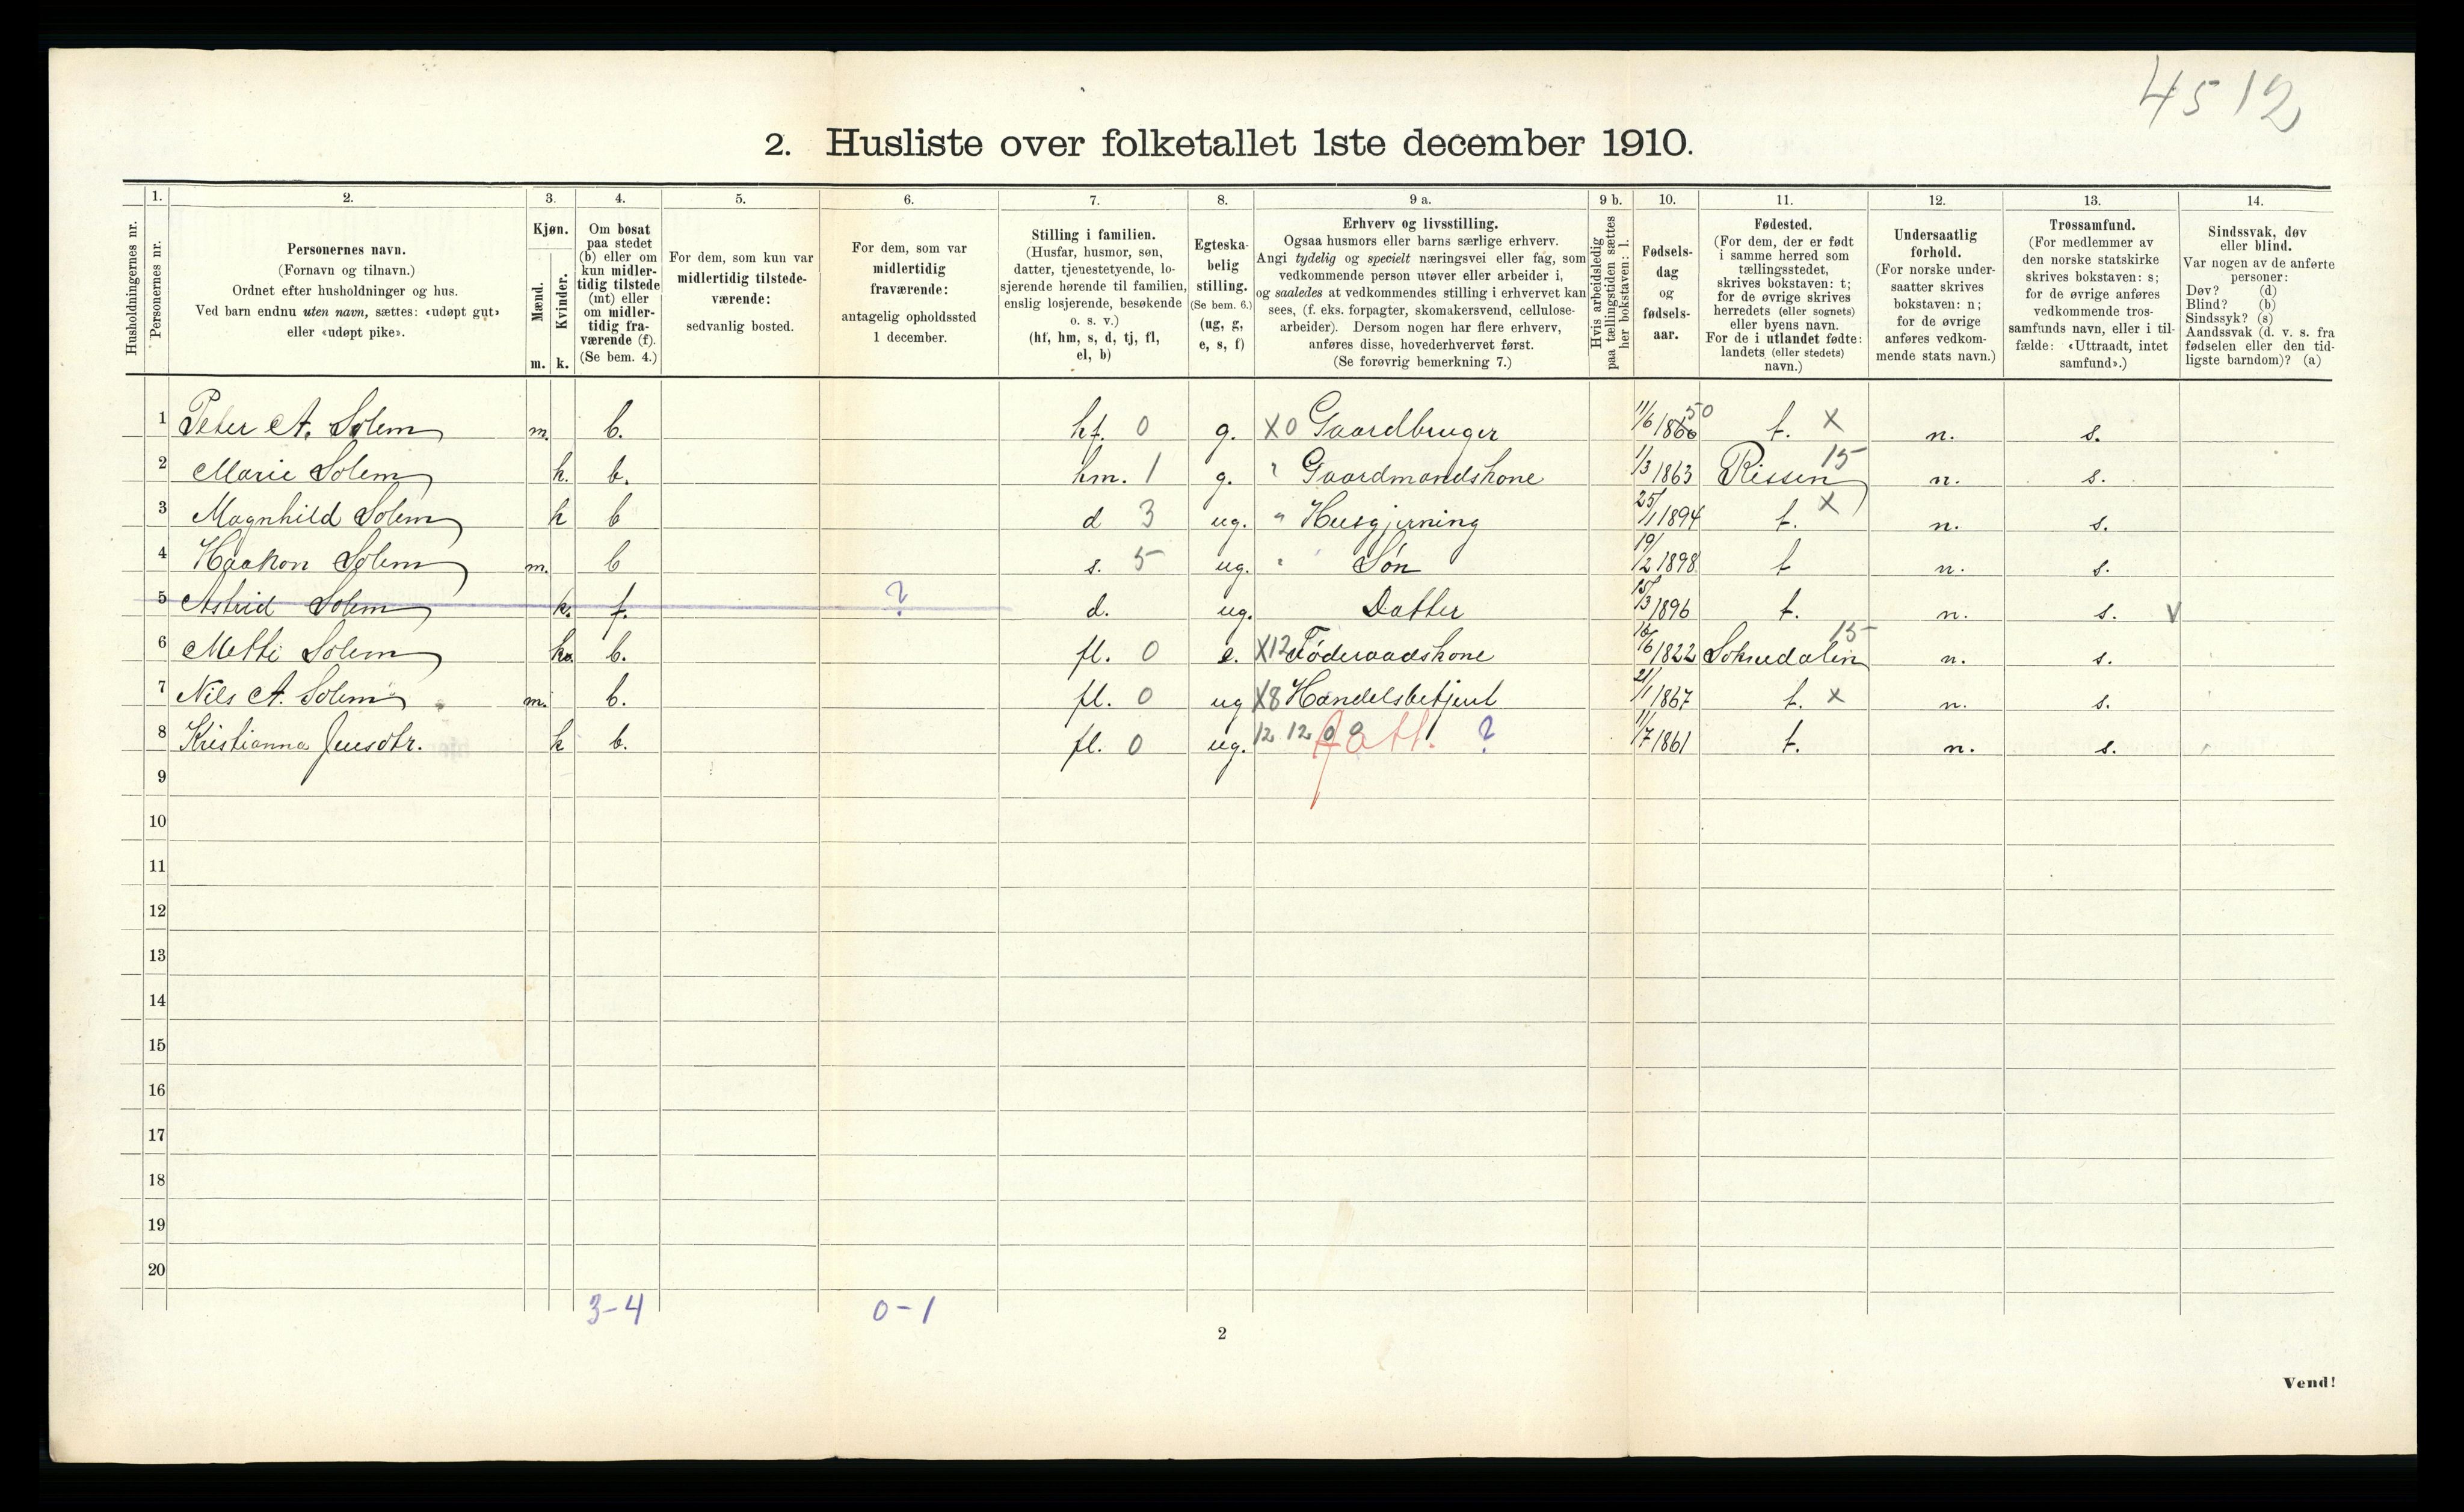 4512
2. Husliste over folketallet 1ste december 1910.
Husholdningernes nr.
1. Personernes nr.
2. Personernes navn. (Fornavn og tilnavn.) Ordnet efter husholdninger og hus. Ved barn endnu uten navn, sættes: «udøpt gut» eller «udøpt pike».
3. Kjøn. Mænd. m. Kvinder. k.
4. Om bosat paa stedet (b) eller om kun midlertidig tilstede (mt) eller om midlertidig fraværende (f). (Se bem. 4.)
5. For dem, som kun var midlertidig tilstedeværende: sedvanlig bosted.
6. For dem, som var midlertidig fraværende: antagelig opholdssted 1 december.
7. Stilling i familien. (Husfar, husmor, søn, datter, tjenestetyende, losjerende hørende til familien, enslig losjerende, besøkende o. s. v.) (hf, hm, s, d, tj, fl, el, b)
8. Egteskabelig stilling. (Se bem. 6.) (ug, g, e, s, f)
9 a. Erhverv og livsstilling. Ogsaa husmors eller barns særlige erhverv. Angi tydelig og specielt næringsvei eller fag, som vedkommende person utøver eller arbeider i, og saaledes at vedkommendes stilling i erhvervet kan sees, (f. eks. forpagter, skomakersvend, cellulosearbeider). Dersom nogen har flere erhverv, anføres disse, hovederhvervet først. (Se forøvrig bemerkning 7.)
9 b. Hvis arbeidsledig paa tællingstiden sættes her bokstaven: l.
10. Fødselsdag og fødselsaar.
11. Fødested. (For dem, der er født i samme herred som tællingsstedet, skrives bokstaven: t; for de øvrige skrives herredets (eller sognets) eller byens navn. For de i utlandet fødte: landets (eller stedets) navn.)
12. Undersaatlig forhold. (For norske undersaatter skrives bokstaven: n; for de øvrige anføres vedkommende stats navn.)
13. Trossamfund. (For medlemmer av den norske statskirke skrives bokstaven: s; for de øvrige anføres vedkommende trossamfunds navn, eller i tilfælde: «Uttraadt, intet samfund».)
14. Sindssvak, døv eller blind. Var nogen av de anførte personer: Døv? (d) Blind? (b) Sindssyk? (s) Aandssvak (d. v. s. fra fødselen eller den tidligste barndom)? (a)
1 Peter A. Solem m. b. hf. 0 g. X0 Gaardbruger 11/6 1860 50 t. X n. s.
2 Marie Solem k. b. hm. 1 g. " Gaardmandskone 1/3 1863 Rissen 15 n. s.
3 Magnhild Solem k b d 3 ug. " Husgjerning 25/1 1894 t. X n. s.
4 Haakon Solem m. b s. 5 ug. " Søn 19/2 1898 t n. s.
5 Astrid Solem k. f. ? d. ug. Datter 15/3 1896 t. n. s. V
6 Metti Solem k. b. fl. 0 e. X12 Føderaadskone 16/6 1822 Soknedalen 15 n. s.
7 Nils A. Solem m. b. fl. 0 ug X8 Handelsbetjent 21/1 1867 t. X n. s.
8 Kristianna Jensdtr. k b. fl. 0 ug. 12 12 0 0 fatt. ? 11/7 1861 t. n. s.
9
10
11
12
13
14
15
16
17
18
19
20
3-4 0-1
2
Vend!